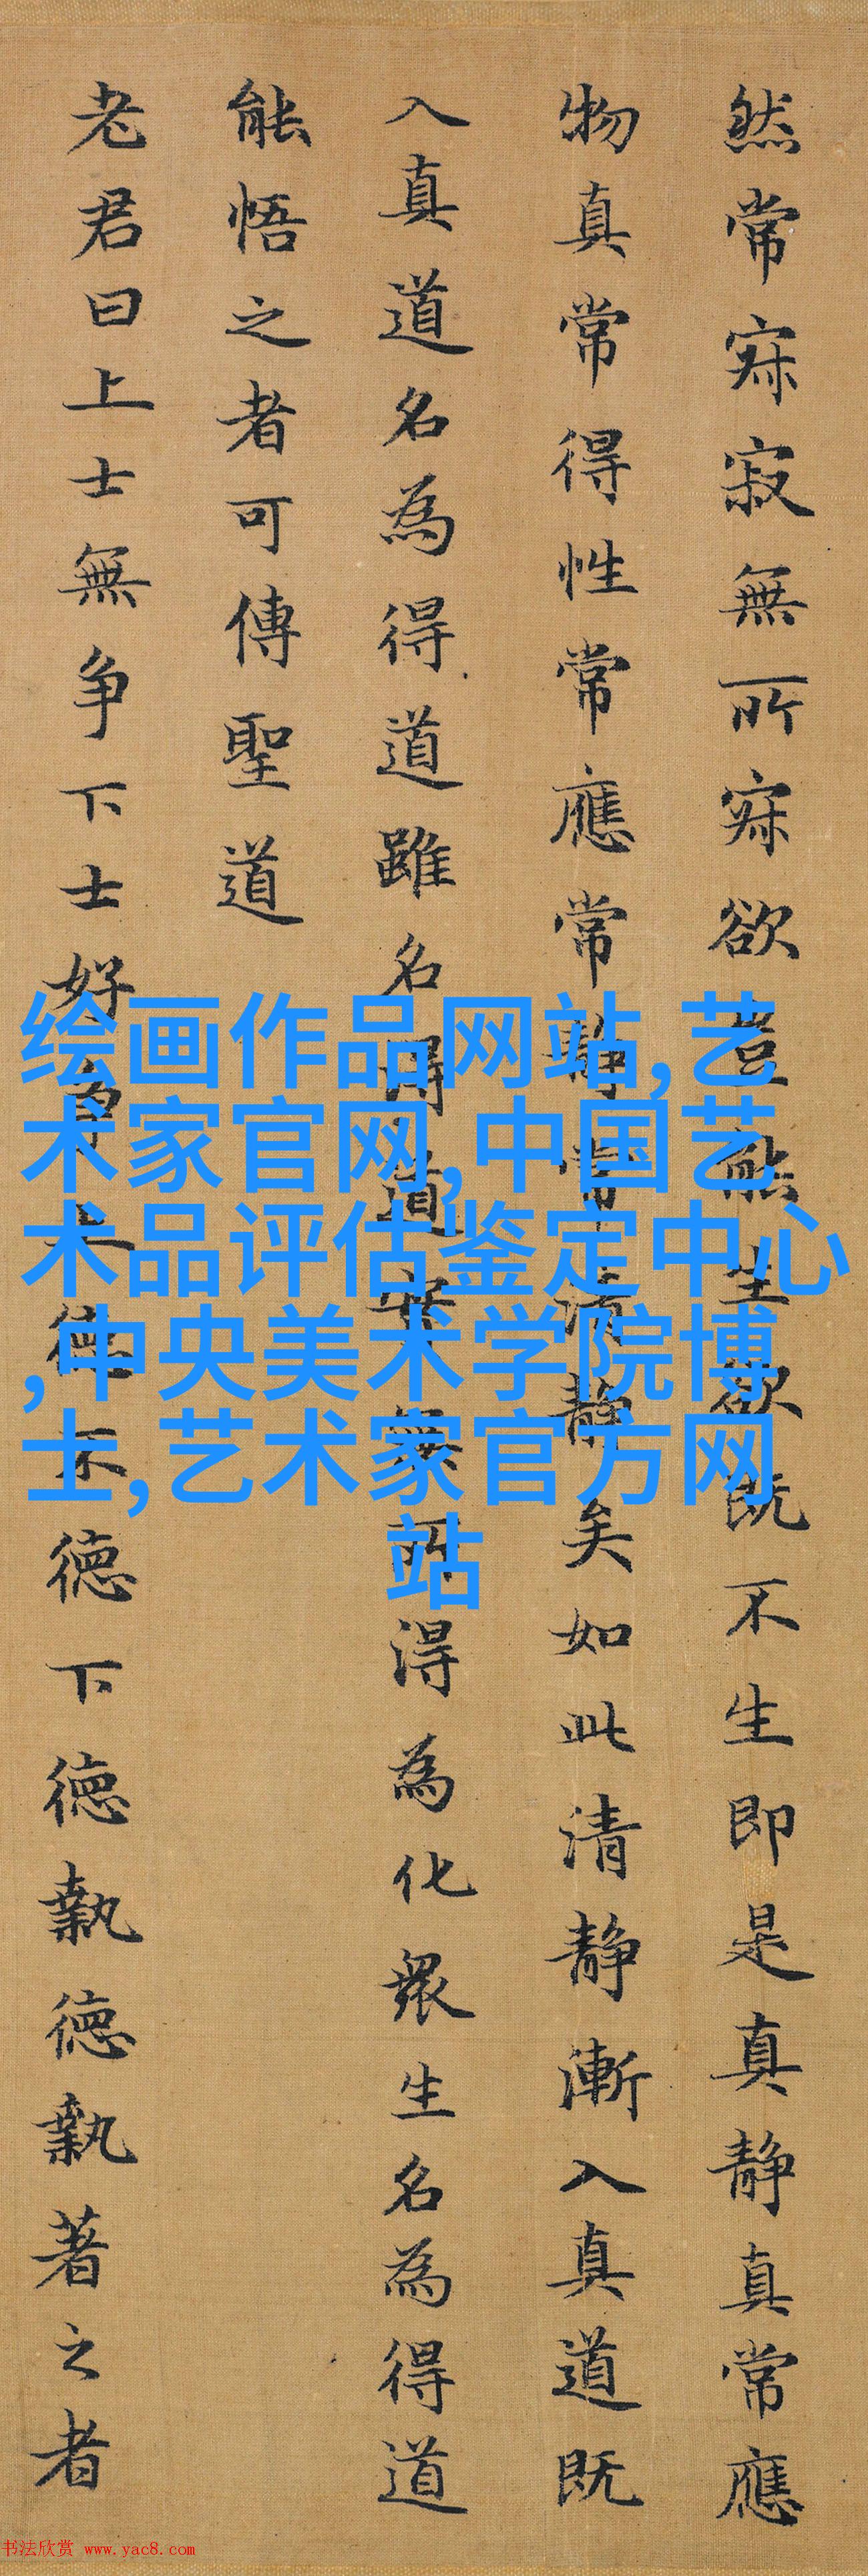 然常寂寂無所寂欲豈能生欲既不生即是真静真常應
物真常得性常應常静常清静矣如此清静漸入真道既
入真道名為得道雖名得道實無所得為化衆生名為得道
能悟之者可傳聖道
老君曰上士無争下士好争上德不德下德執德執著之者
绘画作品网站,艺
术家官网,中国艺
术品评估鉴定中心
,中央美术学院博
士,艺术家官方网
站
书法欣赏 www.yac8.com